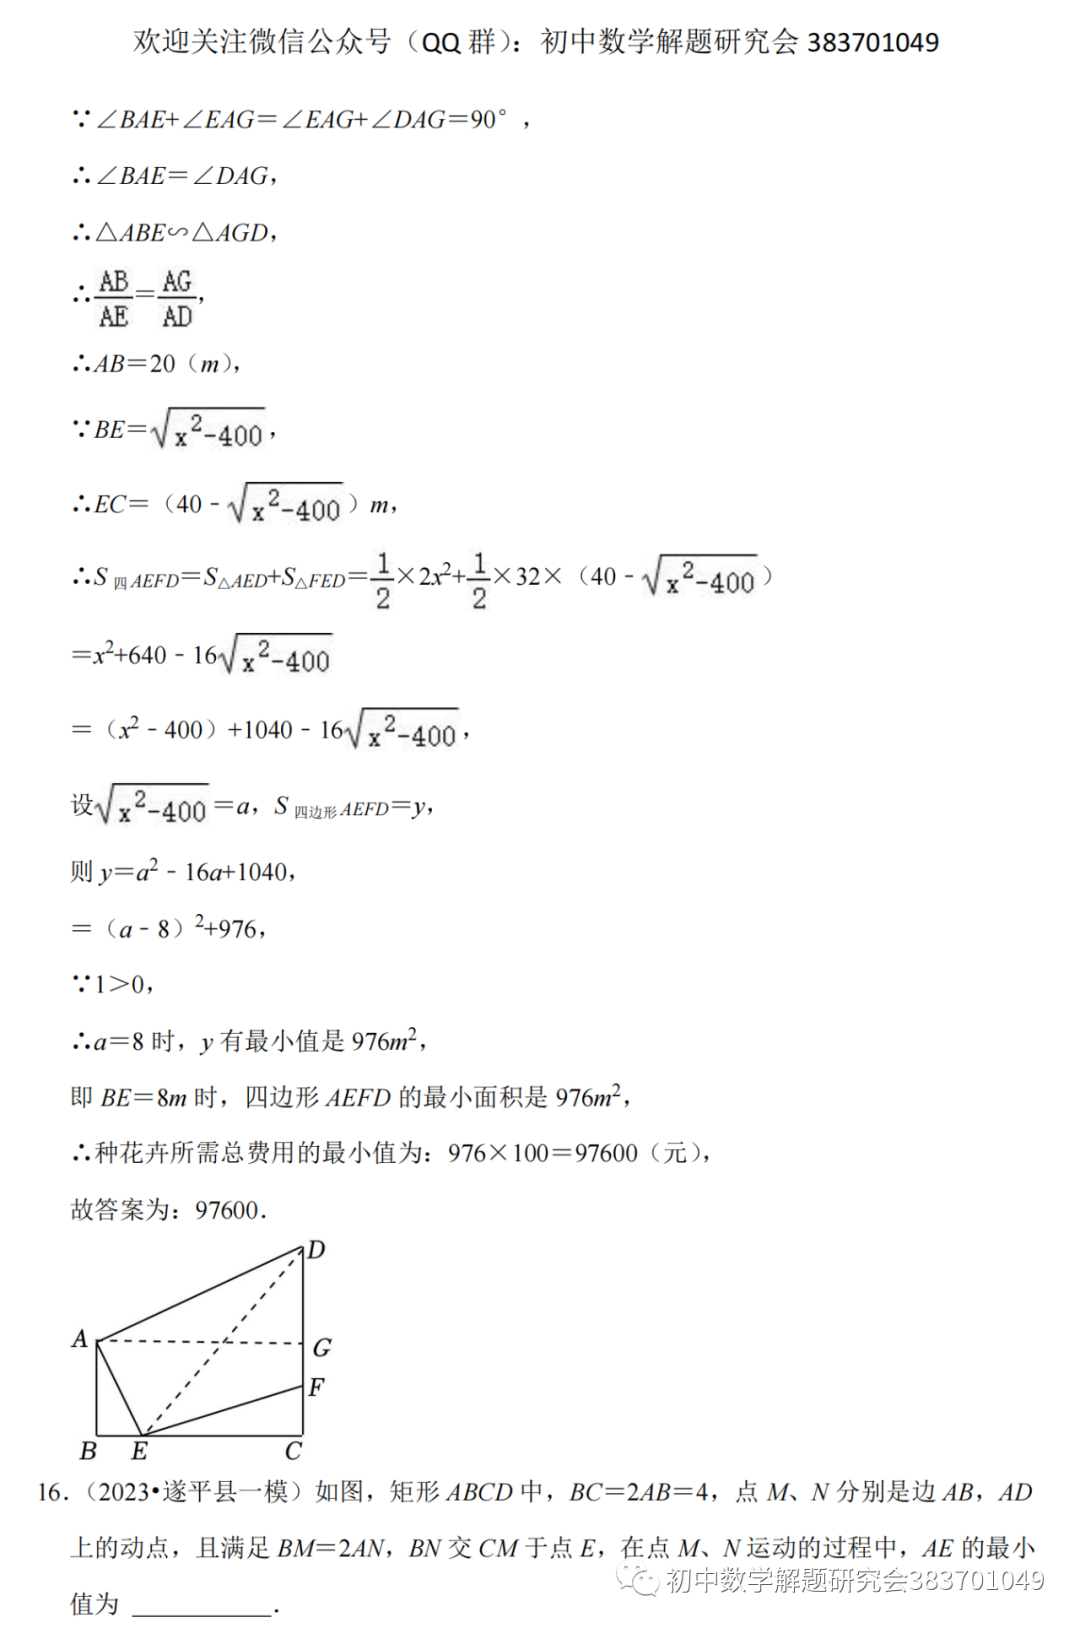 欢迎关注微信公众号（QQ 群）：初中数学解题研究会 383701049
∵∠BAE+∠EAG＝∠EAG+∠DAG＝90°，
∴∠BAE＝∠DAG，
∴△ABE∽△AGD，
∴AB/AE=AG/AD，
∴AB＝20（m），
∵BE＝√(x²-400)，
∴EC＝（40﹣√(x²-400)）m，
∴S 四 AEFD＝S△AED+S△FED＝1/2×2x²+1/2×32×（40﹣√(x²-400)）
＝x²+640﹣16√(x²-400)
＝（x²﹣400）+1040﹣16√(x²-400)，
设√(x²-400)＝a，S 四边形 AEFD＝y，
则 y＝a²﹣16a+1040，
＝（a﹣8）²+976，
∵1＞0，
∴a＝8 时，y 有最小值是 976m²，
即 BE＝8m 时，四边形 AEFD 的最小面积是 976m²，
∴种花卉所需总费用的最小值为：976×100＝97600（元），
故答案为：97600．
D
A
G
F
B E C
16．（2023•遂平县一模）如图，矩形 ABCD 中，BC＝2AB＝4，点 M、N 分别是边 AB，AD
上的动点，且满足 BM＝2AN，BN 交 CM 于点 E，在点 M、N 运动的过程中，AE 的最小
初中数学解题研究会383701049
值为 ___________．